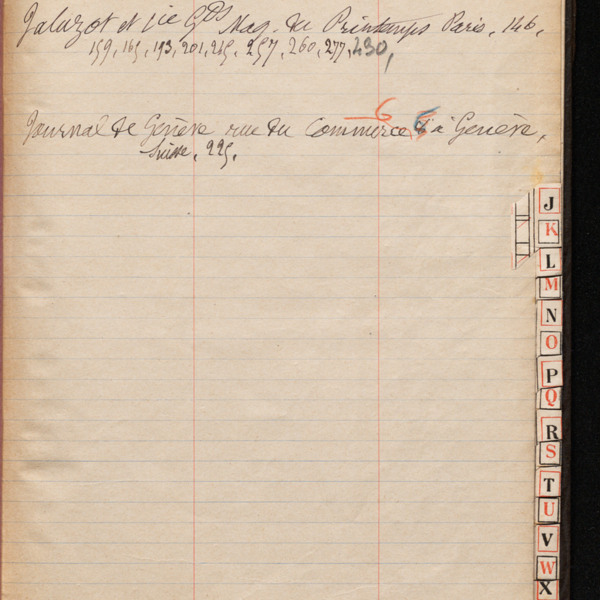 Jaluzot et Cie Gds Mag. du Printemps Paris, 146,
159, 165, 193, 201, 215, 257, 260, 277, 290,
6
Journal de Genève rue du Commerce 6 à Genève,
Suisse, 225,
J
K
L
M
N
O
P
Q
R
S
T
U
V
W
X